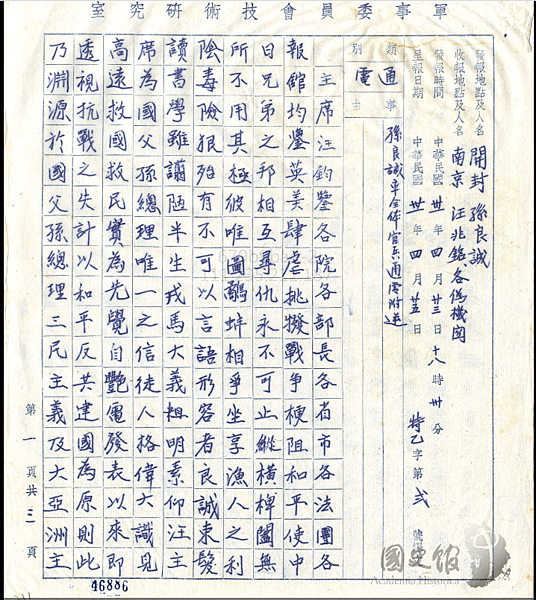 軍事委員會技術研究室
發報地點及人名 開封 孫良誠
收報地點及人名 南京 汪兆銘、各偽機関
發報時間 中華民國 卅一 年 四 月 廿三 日 十八 時 卅 分
呈報日期 中華民國 卅一 年 四 月 廿五 日 特乙 字第 弍 號
類別 通電
事由 孫良誠率全体官兵通電附逆
主席汪鈞鑒各院各部長各省市各法團各
報館均鑒英美肆虐挑撥戰争梗阻和平使中
日兄弟之邦相互尋仇永不可止縱橫椑闔無
所不用其極彼唯圖鷸蚌相爭坐享漁人之利
陰毒險狠殆有不可以言語形容者良誠束髮
讀書學雖譾陋半生戎馬大義粗明素仰汪主
席為國父孫總理唯一之信徒人格偉大識見
高遠救國救民實為先覺自艷電發表以來即
透視抗戰之失計以和平反共建國為原則此
乃淵源於國父孫總理三民主義及大亞洲主
第一頁共三頁
46886
國史館
Academia Historica